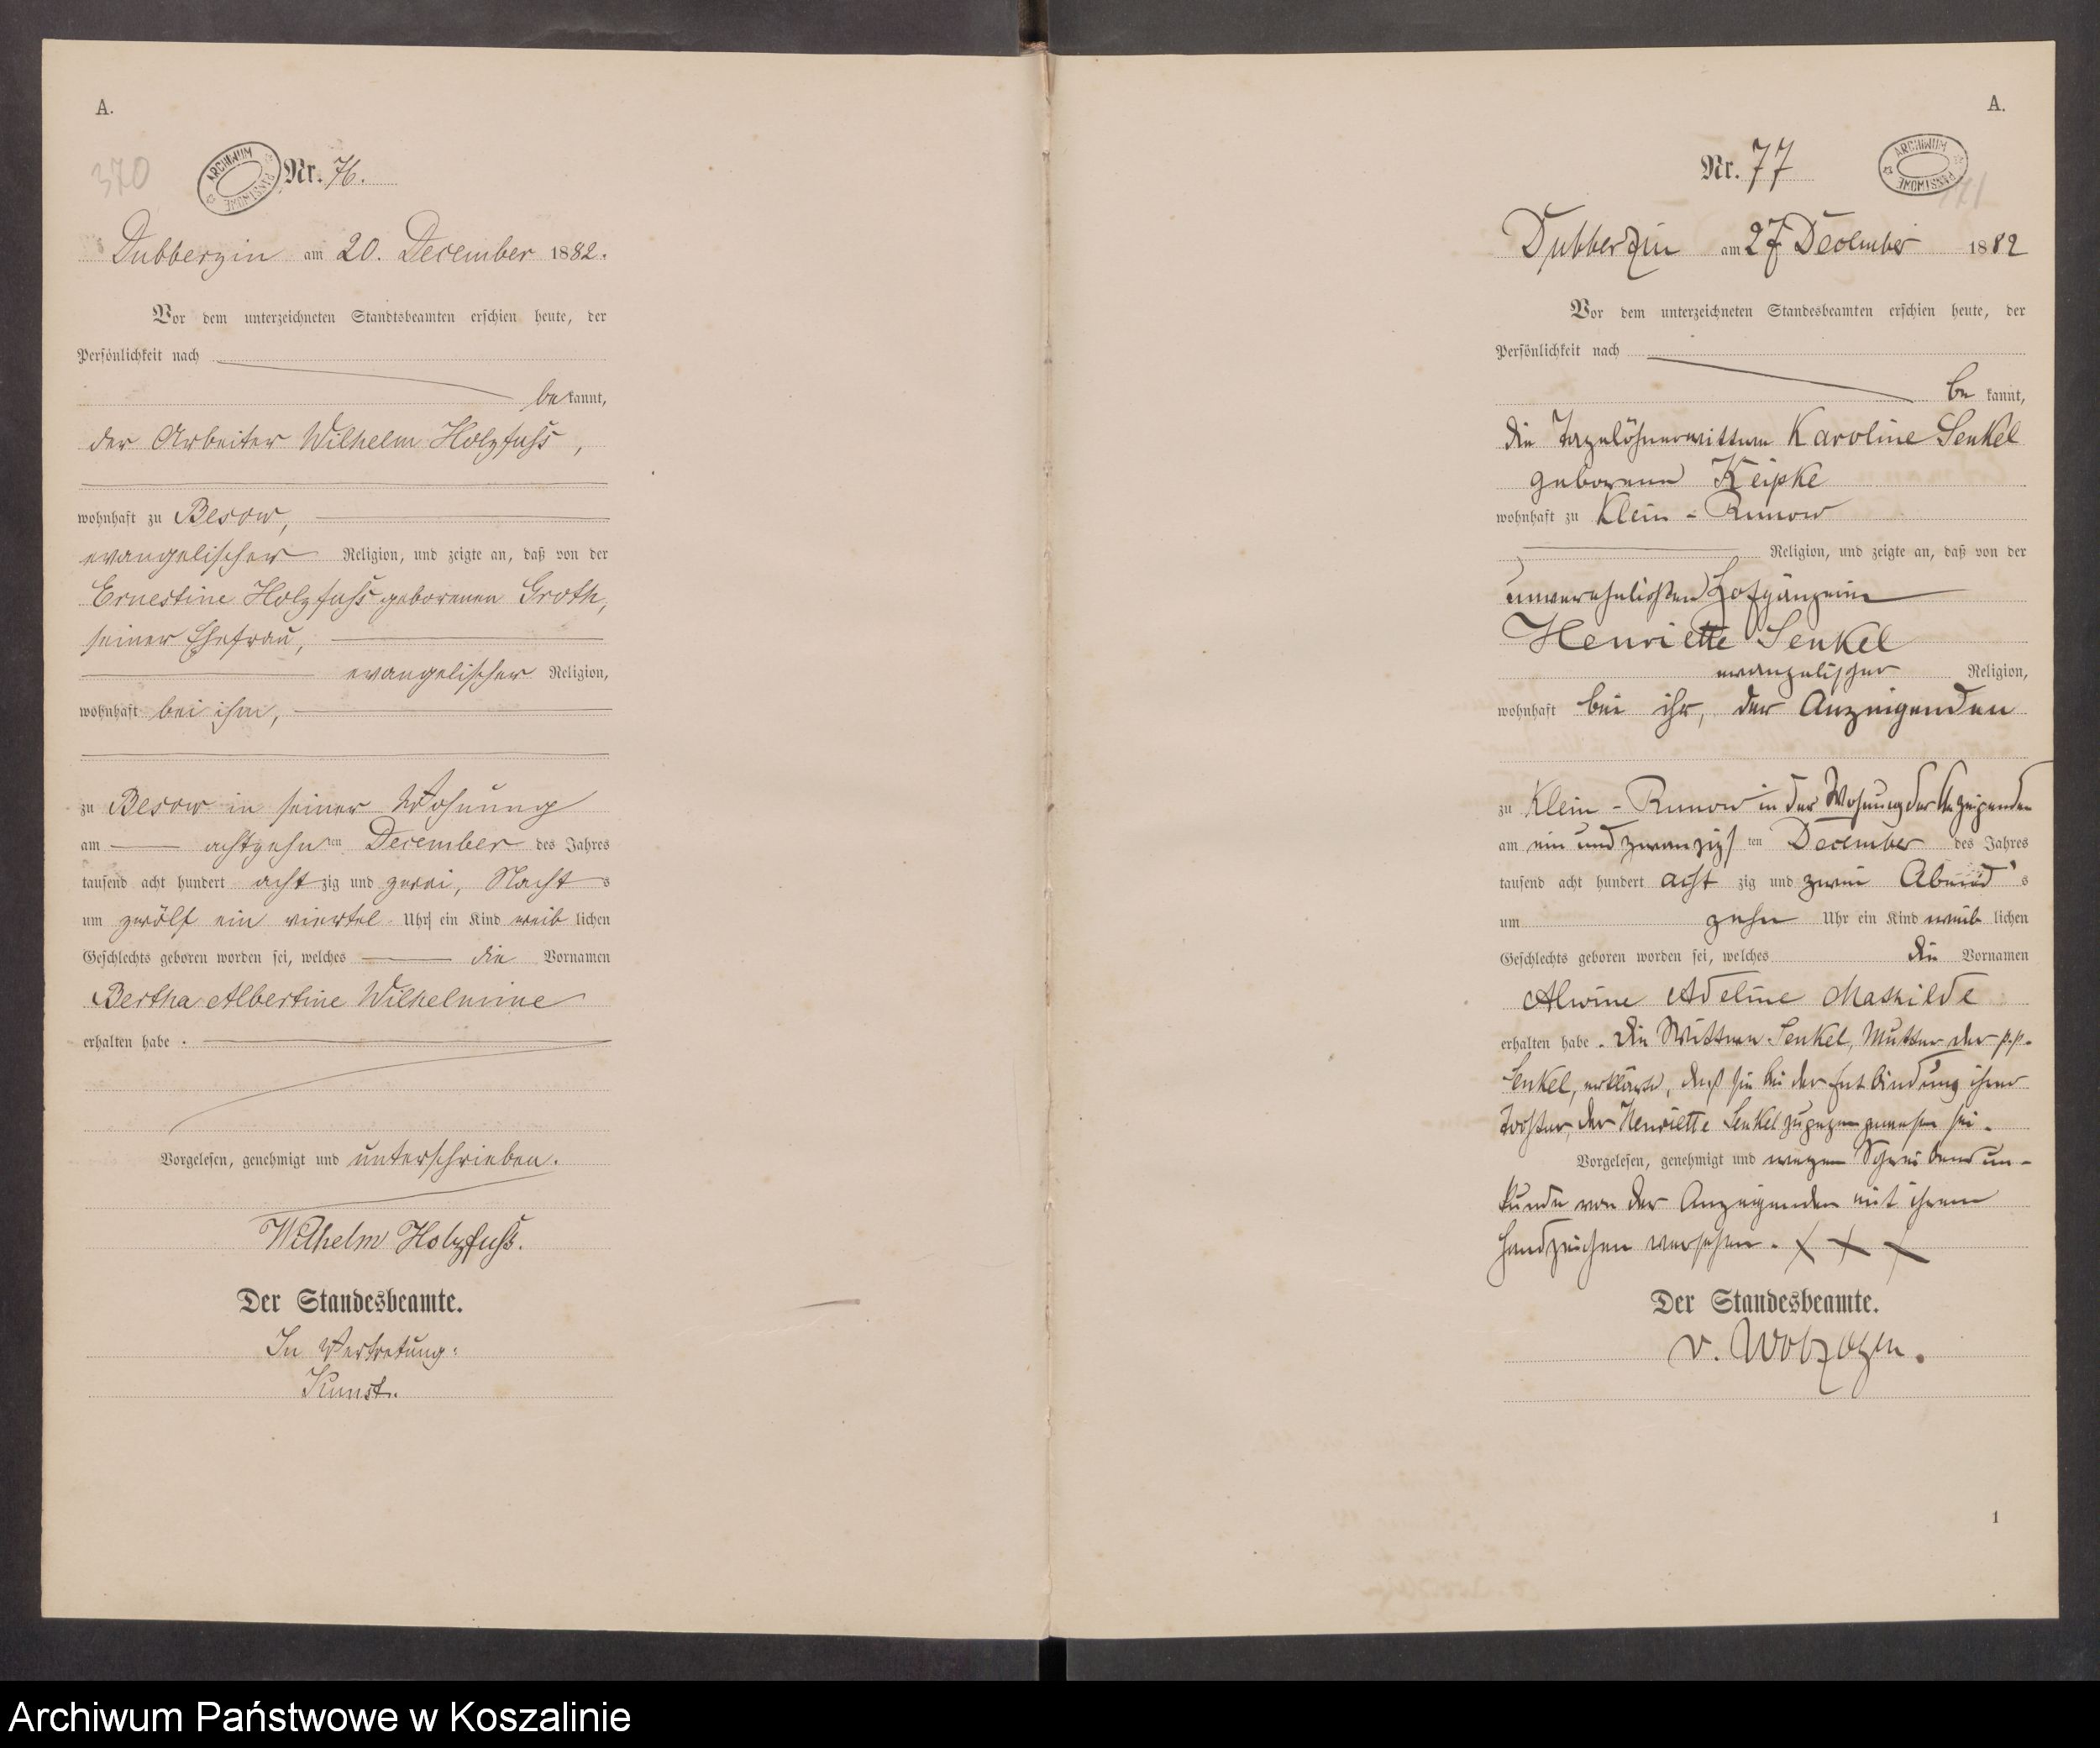 A.
370
ARCHIWUM PAŃSTWOWE
Nr. 76.
Dubberzin am 20. December 1882.
Vor dem unterzeichneten Standtsbeamten erschien heute, der
Persönlichkeit nach
bekannt,
der Arbeiter Wilhelm Holzfuß,
wohnhaft zu Besow,
evangelischer Religion, und zeigte an, daß von der
Ernestine Holzfuß geborenen Groth,
seiner Ehefrau,
evangelischer Religion,
wohnhaft bei ihm,
zu Besow in seiner Wohnung
am achtzehnten December des Jahres
tausend acht hundert achtzig und zwei, Nachts
um zwölf ein viertel Uhr ein Kind weiblichen
Geschlechts geboren worden sei, welches die Vornamen
Bertha Albertine Wilhelmine
erhalten habe.
Vorgelesen, genehmigt und unterschrieben.
Wilhelm Holzfuß.
Der Standesbeamte.
In Vertretung:
Kunst.
A.
Nr. 77
ARCHIWUM PAŃSTWOWE
371
Dubberzin am 27 December 1882
Vor dem unterzeichneten Standesbeamten erschien heute, der
Persönlichkeit nach
bekannt,
die Tagelöhnerwittwe Karoline Senkel
geborene Keipke
wohnhaft zu Klein-Runow
Religion, und zeigte an, daß von der
unverehelichten Hofgängerin
Henriette Senkel
evangelischer Religion,
wohnhaft bei ihr, der Anzeigenden
zu Klein-Runow in der Wohnung der Anzeigenden
am ein und zwanzigsten December des Jahres
tausend acht hundert achtzig und zwei Abends
um zehn Uhr ein Kind weiblichen
Geschlechts geboren worden sei, welches die Vornamen
Alwine Adeline Mathilde
erhalten habe. Die Wittwe Senkel, Mutter der p.p.
Senkel, erklärte, daß sie bei der Entbindung ihrer
Tochter, der Henriette Senkel zugegen gewesen sei.
Vorgelesen, genehmigt und wegen Schreibensun-
kunde von der Anzeigenden mit ihrem
Handzeichen versehen. X X X
Der Standesbeamte.
v. Wolzogen.
1
Archiwum Państwowe w Koszalinie